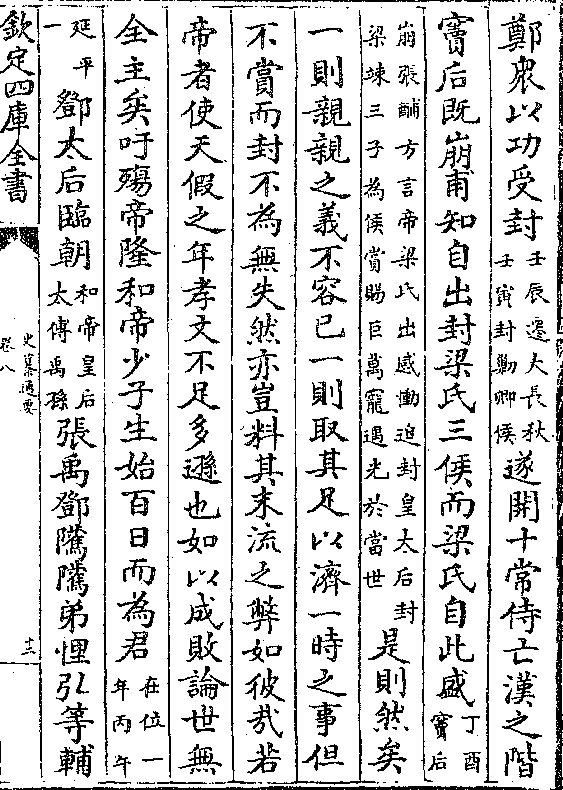 鄭衆以功受封壬辰遷大長秋壬寅封勦鄉侯遂開十常侍亡漢之階
竇后既崩甫知自出封梁氏三侯而梁氏自此盛丁酉竇后
崩張酺方言帝梁氏出感慟追封皇太后封梁竦三子為侯賞賜巨萬寵遇光於當世是則然矣
一則親親之義不容已一則取其足以濟一時之事但
不賞而封不為無失然亦豈料其末流之弊如彼哉若
帝者使天假之年孝文不足多遜也如以成敗論世無
全主矣吁殤帝隆和帝少子生始百日而為君在位一年丙午
延平一鄧太后臨朝和帝皇后太傅禹孫張禹鄧騭騭弟悝弘等輔
欽定四庫全書
史纂通要
卷八
十三